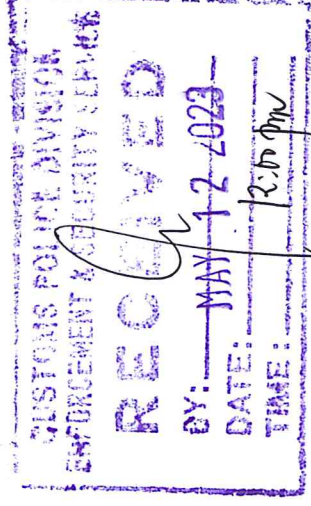 CUSTOMS POLICE DIVISION
ENFORCEMENT & SECURITY SERVICE
RECEIVED
BY:
MAY 12 2023
DATE:
TIME: 12:00 pm